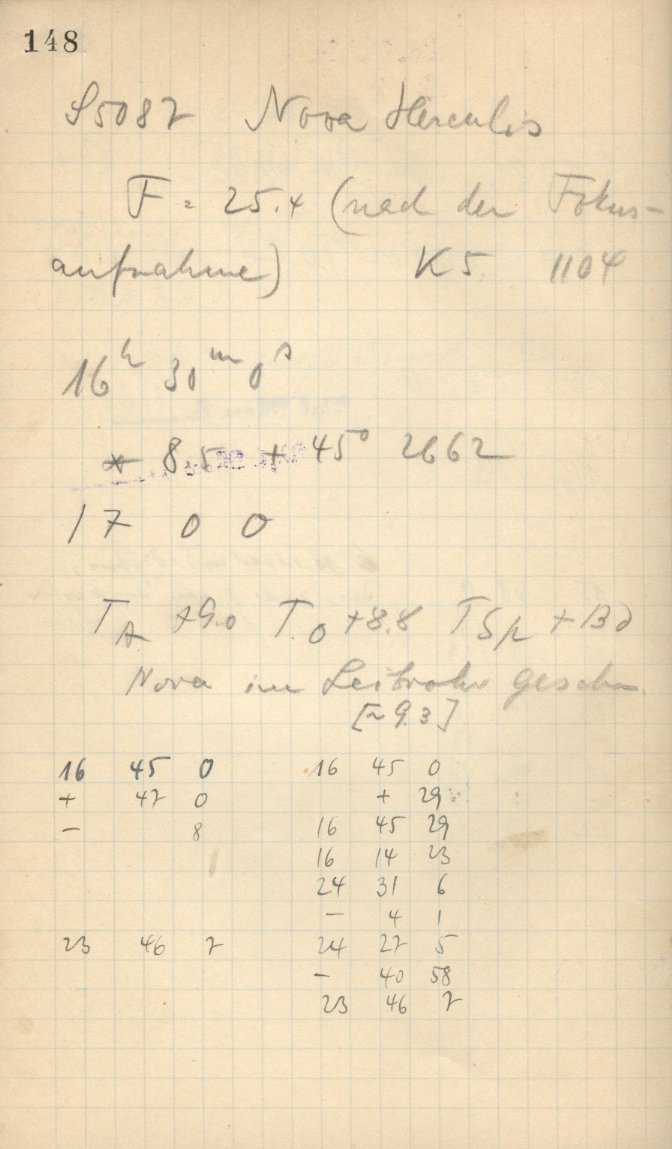 148
S5087 Nova Herculis
F = 25.4 (nach der Fokus-
aufnahme) K5 1104
16h 30m 0s
* 8.5 +45° 2662
17 0 0
TA +9.0 TO +8.8 TSp
Nova im Leitrohr gesehen
[~ 9.3]
16 45 0 16 45 0
+ 47 0 + 29
- 8 16 45 29
16 14 23
24 31 6
- 4 1
23 46 7 24 27 5
- 40 58
23 46 7